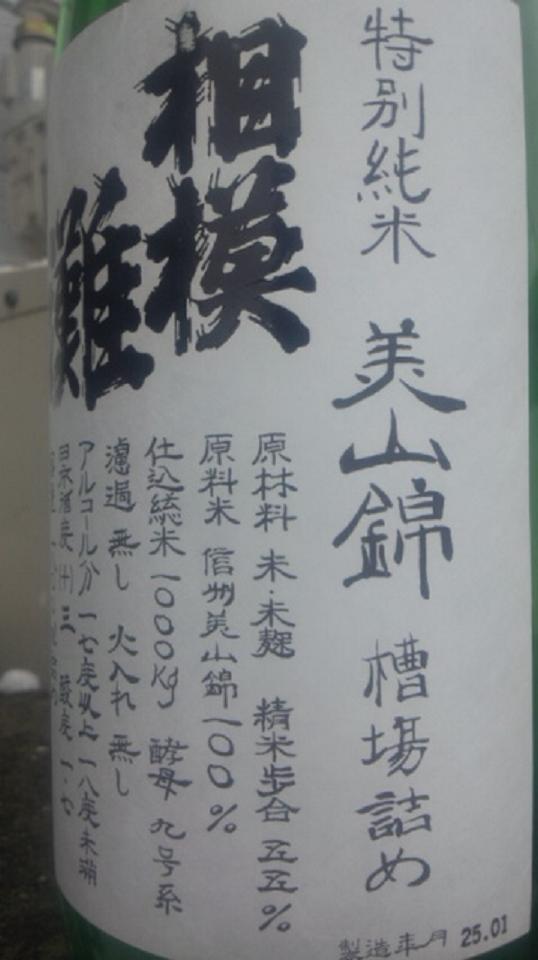 特別純米 美山錦 槽場詰め
相模
灘
原材料 米・米麹 精米歩合 五五%
原料米 信州美山錦一〇〇%
仕込総米 一〇〇〇kg 酵母 九号系
濾過 無し 火入れ 無し
アルコール分 一七度以上 一八度未満
日本酒度(+)三 酸度 一・七
製造年月 25.01